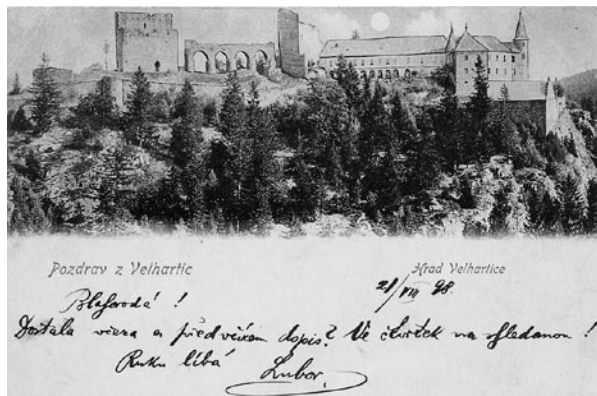 Pozdrav z Velhartic
Hrad Velhartice
21/VIII 98.
Blahorodá !
Dostala včera a předvčírem dopis? Ve čtvrtek na shledanou !
Ruku líbá
Lubor.